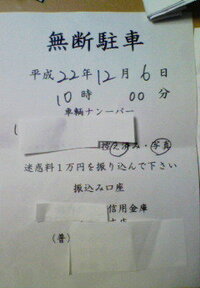 無断駐車
平成22年12月6日
10時00分
車輌ナンバー
控え済み・写真
迷惑料1万円を振り込んで下さい
振込み口座
信用金庫
(普)